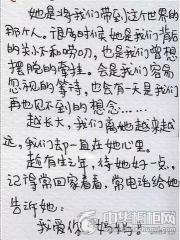 她是将我们带到这个世界的
那个人。很多时候她是我们背后
的关怀和唠叨，也是我们曾想
摆脱的牵挂。会是我们容易
忽视的等待，也会有一天是我们
再也见不到的想念……
越长大，我们离她越来越
远，我们却一直在她心里。
趁有生之年，待她好一点，
记得常回家看看，常电话给她
告诉她：
我爱你 妈妈
中华橱柜网